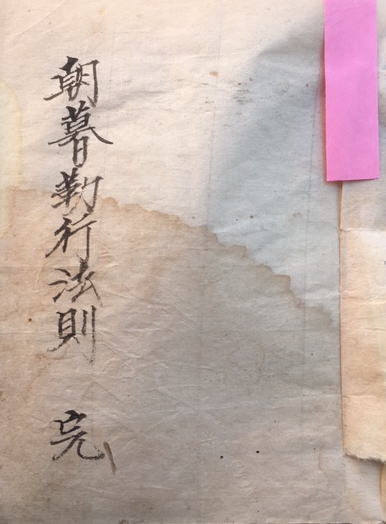 朝暮勤行法則 完